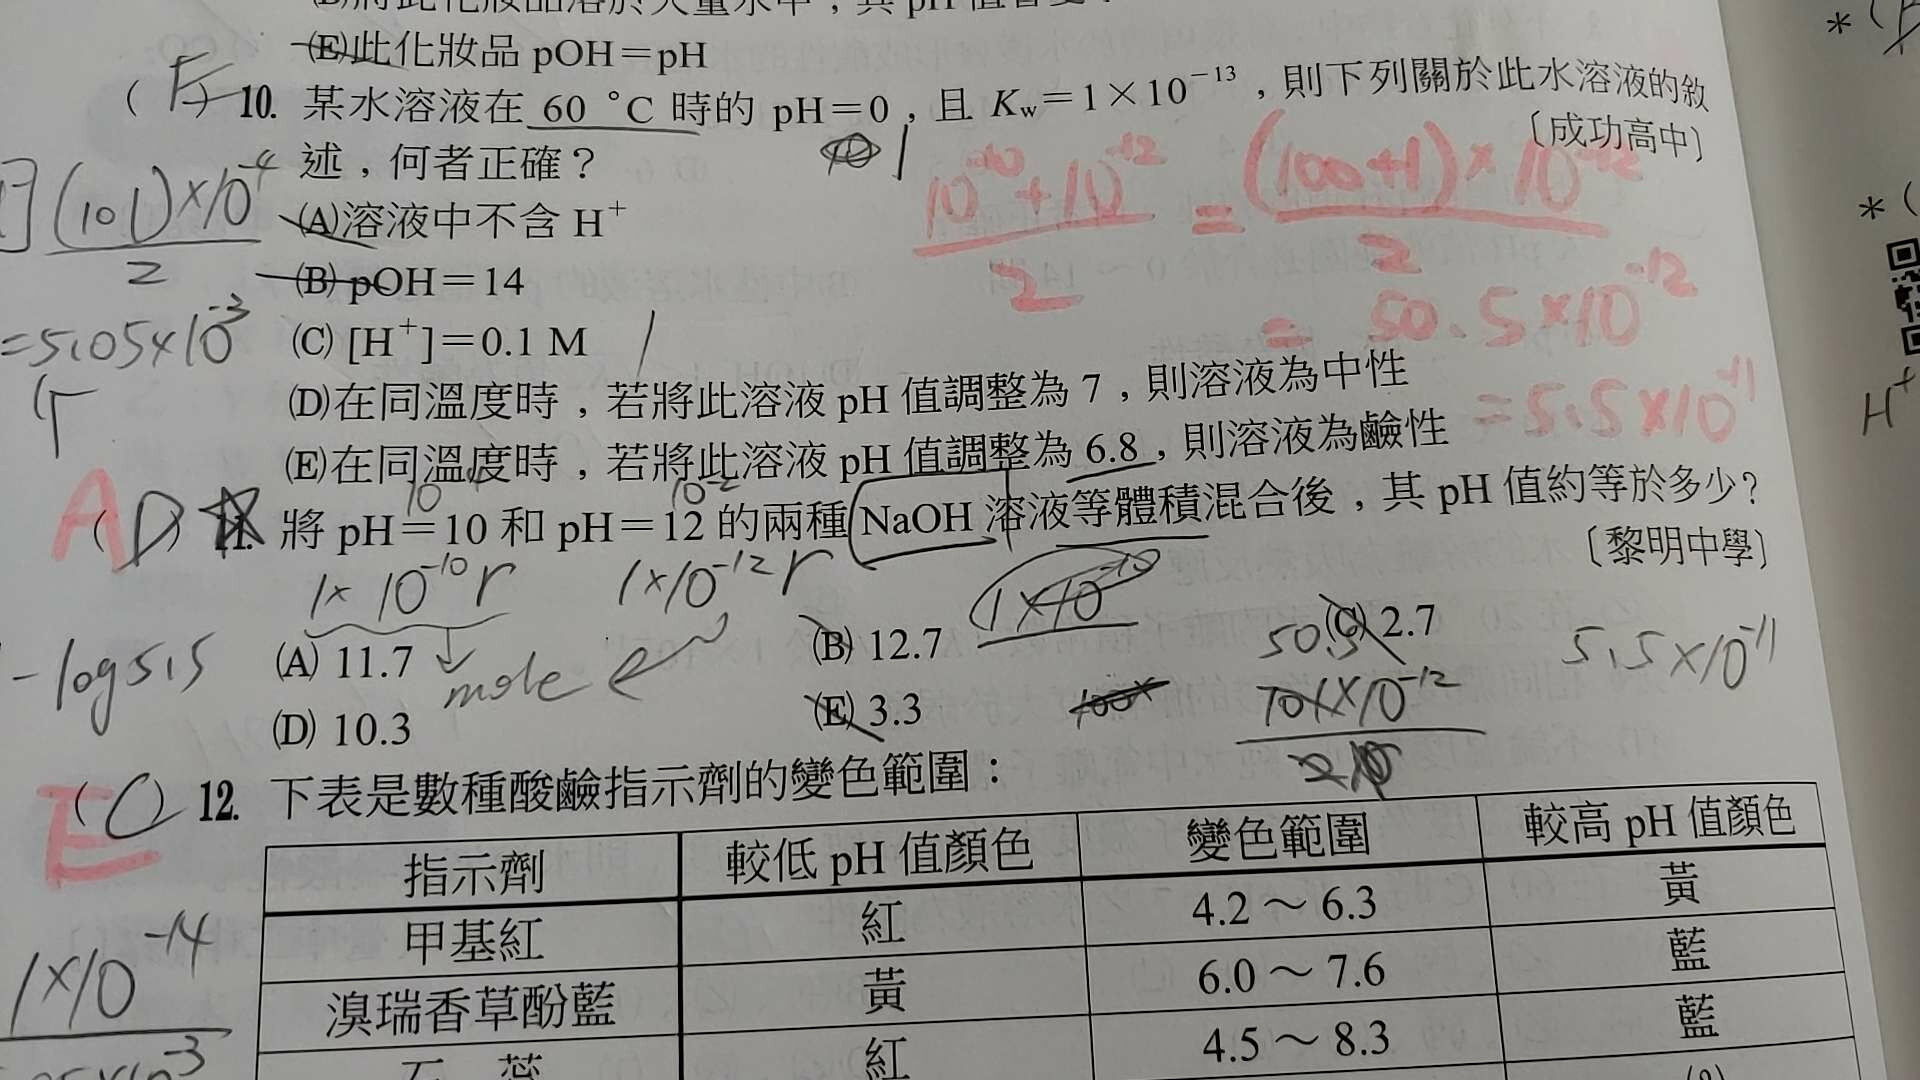 (E)此化妝品 pOH＝pH
( E ) 10. 某水溶液在 60 °C 時的 pH＝0，且 Kw＝1×10⁻¹³，則下列關於此水溶液的敘
述，何者正確？
〔成功高中〕
(A)溶液中不含 H⁺
(B) pOH＝14
(C) [H⁺]＝0.1 M
(D)在同溫度時，若將此溶液 pH 值調整為 7，則溶液為中性
(E)在同溫度時，若將此溶液 pH 值調整為 6.8，則溶液為鹼性
(101)×10⁻⁴
2
=5.05×10⁻³
10⁻¹⁰+10⁻¹²
2
= (100+1)×10⁻¹²
2
= 50.5×10⁻¹²
=5.5×10⁻¹¹
A
( D ) 11. 將 pH＝10 和 pH＝12 的兩種 NaOH 溶液等體積混合後，其 pH 值約等於多少？
〔黎明中學〕
1×10⁻¹⁰ r
1×10⁻¹² r
(A) 11.7
(B) 12.7
(C) 2.7
(D) 10.3
(E) 3.3
mole
-log5.5
50.5
101×10⁻¹²
5.5×10⁻¹¹
E
( C ) 12. 下表是數種酸鹼指示劑的變色範圍：
指示劑 較低 pH 值顏色 變色範圍 較高 pH 值顏色
甲基紅 紅 4.2～6.3 黃
溴瑞香草酚藍 黃 6.0～7.6 藍
石 蕊 紅 4.5～8.3 藍
1×10⁻¹⁴
H⁺